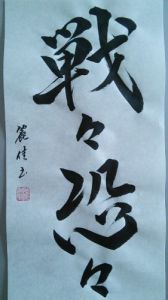 戦々恐々
麗佳書